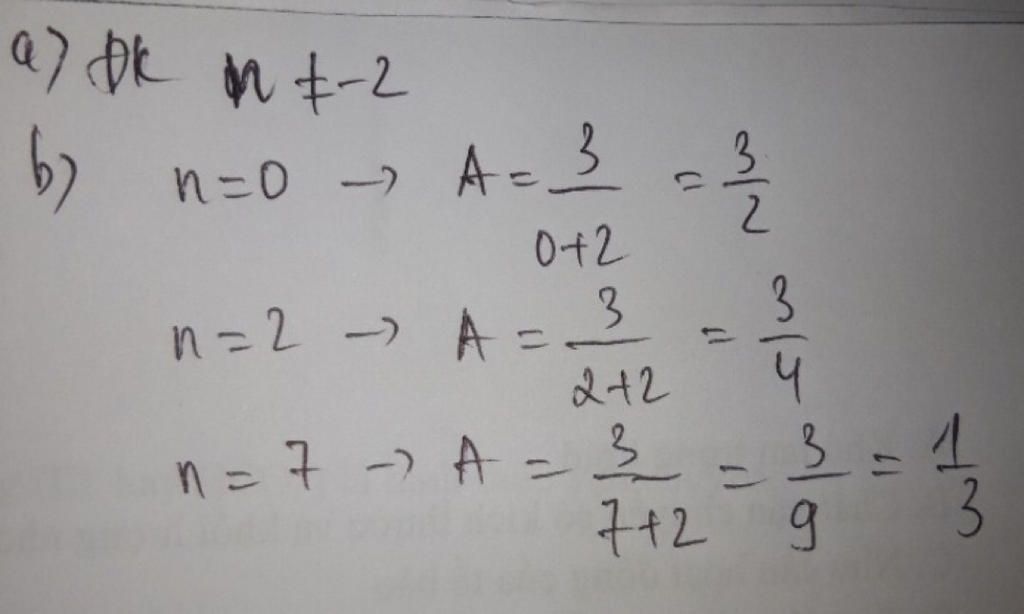 a) ĐK n ≠ -2
b) n = 0 → A = 3/(0+2) = 3/2
n = 2 → A = 3/(2+2) = 3/4
n = 7 → A = 3/(7+2) = 3/9 = 1/3